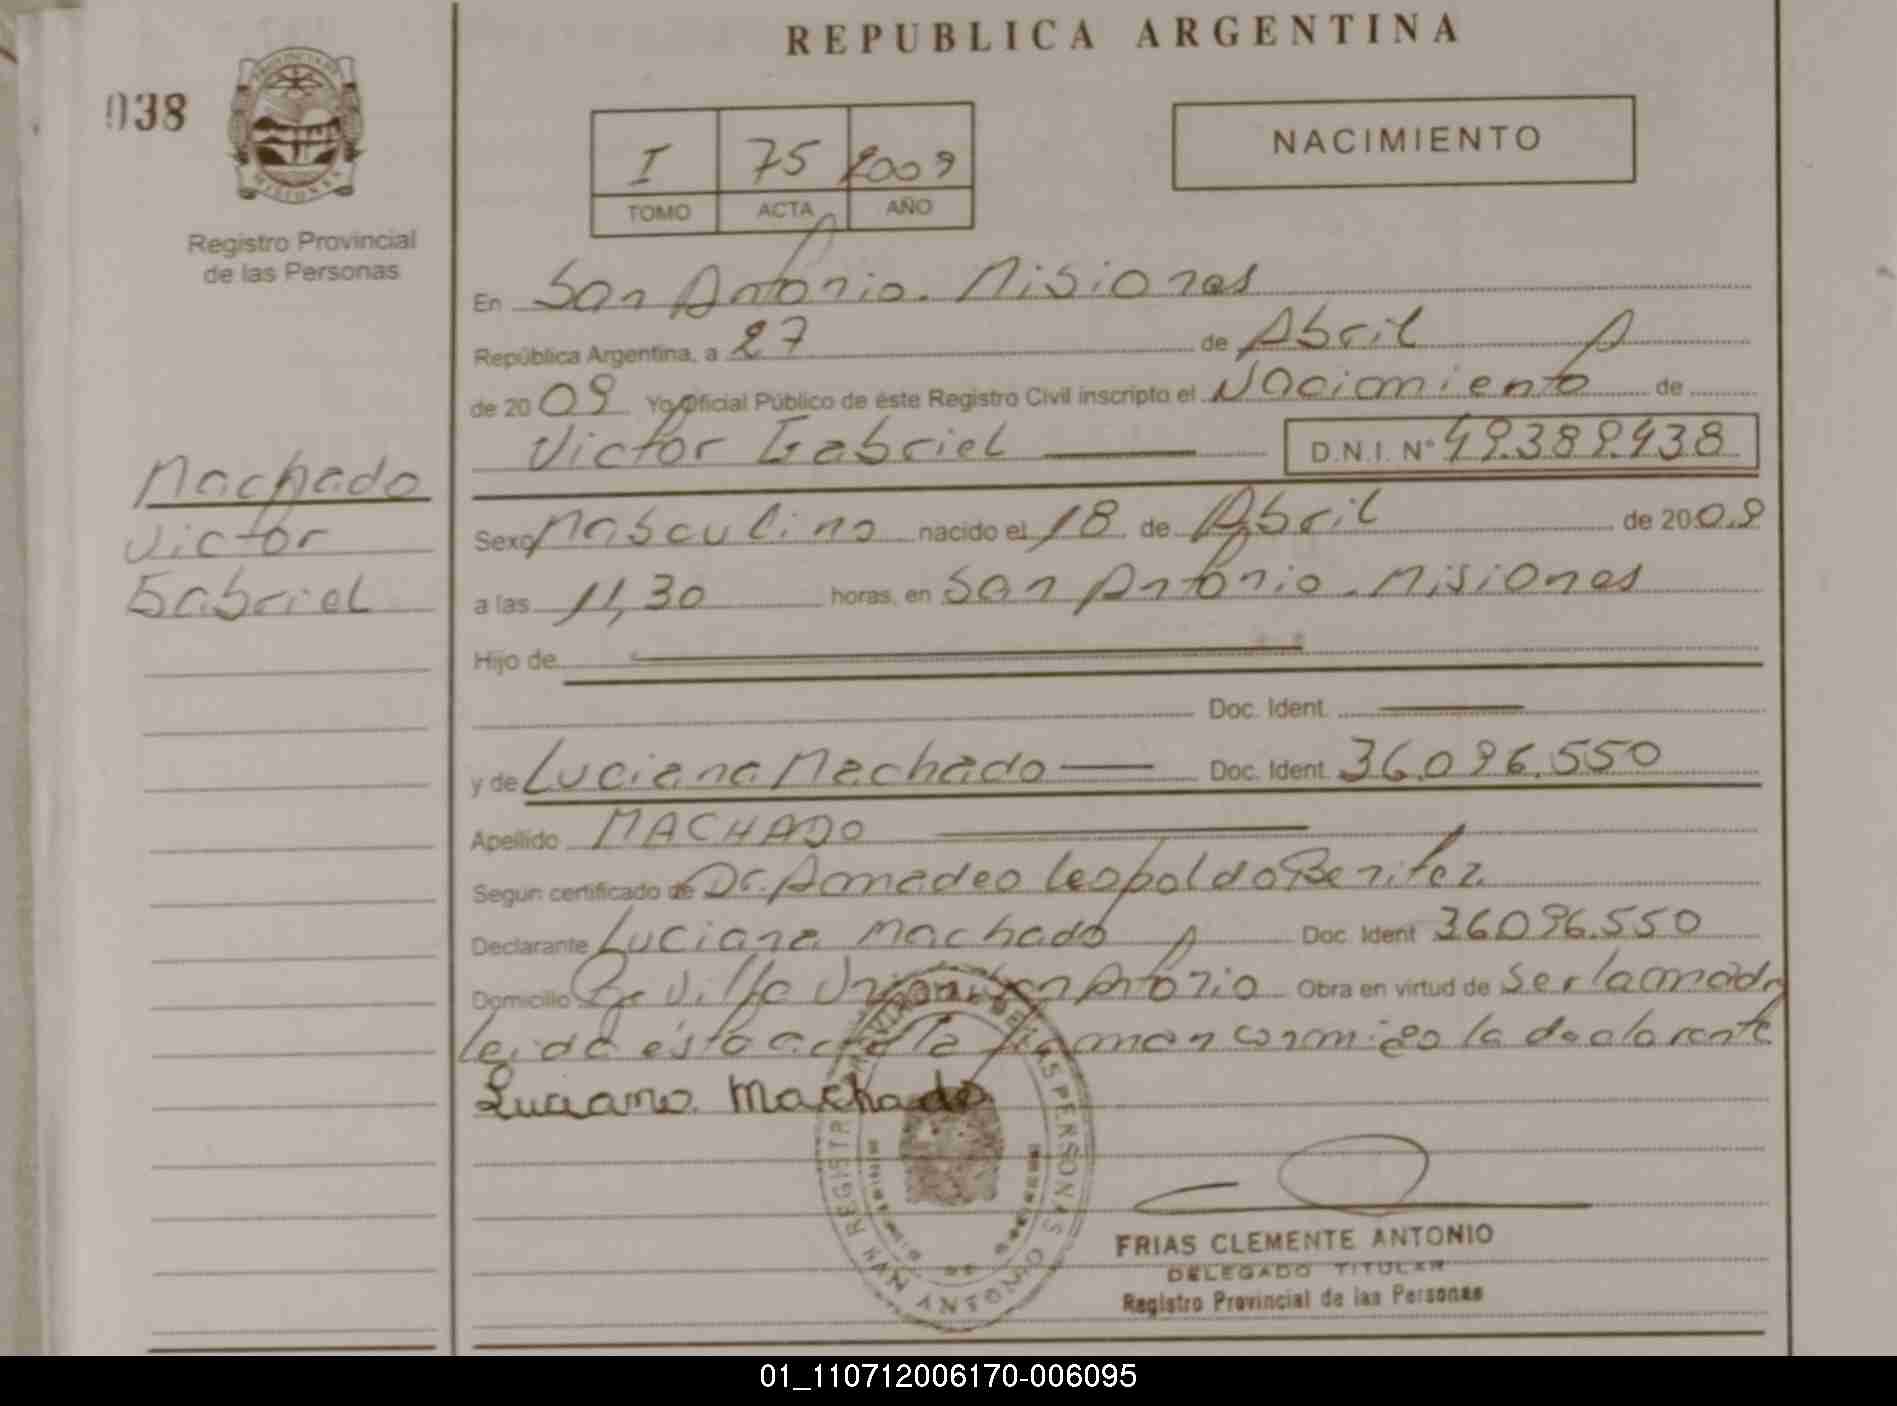 REPUBLICA ARGENTINA
038
PROVINCIA DE MISIONES
Registro Provincial
de las Personas
I 75 2009
TOMO ACTA AÑO
NACIMIENTO
En San Antonio. Misiones
República Argentina, a 27 de Abril
de 2009 Yo Oficial Público de éste Registro Civil inscripto el Nacimiento de
Victor Gabriel D.N.I. Nº 49.389.438
Machado
Victor
Gabriel
Sexo Masculino nacido el 18 de Abril de 2009
a las 11,30 horas, en San Antonio. Misiones
Hijo de
Doc. Ident.
y de Luciana Machado Doc. Ident. 36.096.550
Apellido MACHADO
Según certificado de Dr. Amadeo Leopoldo Benitez
Declarante Luciana Machado Doc. Ident 36.096.550
Domicilio Villa Union San Antonio Obra en virtud de ser la madre
leida ésta acta la firman conmigo la declarante
Luciana Machado
REGISTRO PROVINCIAL DE LAS PERSONAS
SAN ANTONIO
FRIAS CLEMENTE ANTONIO
DELEGADO TITULAR
Registro Provincial de las Personas
01_110712006170-006095